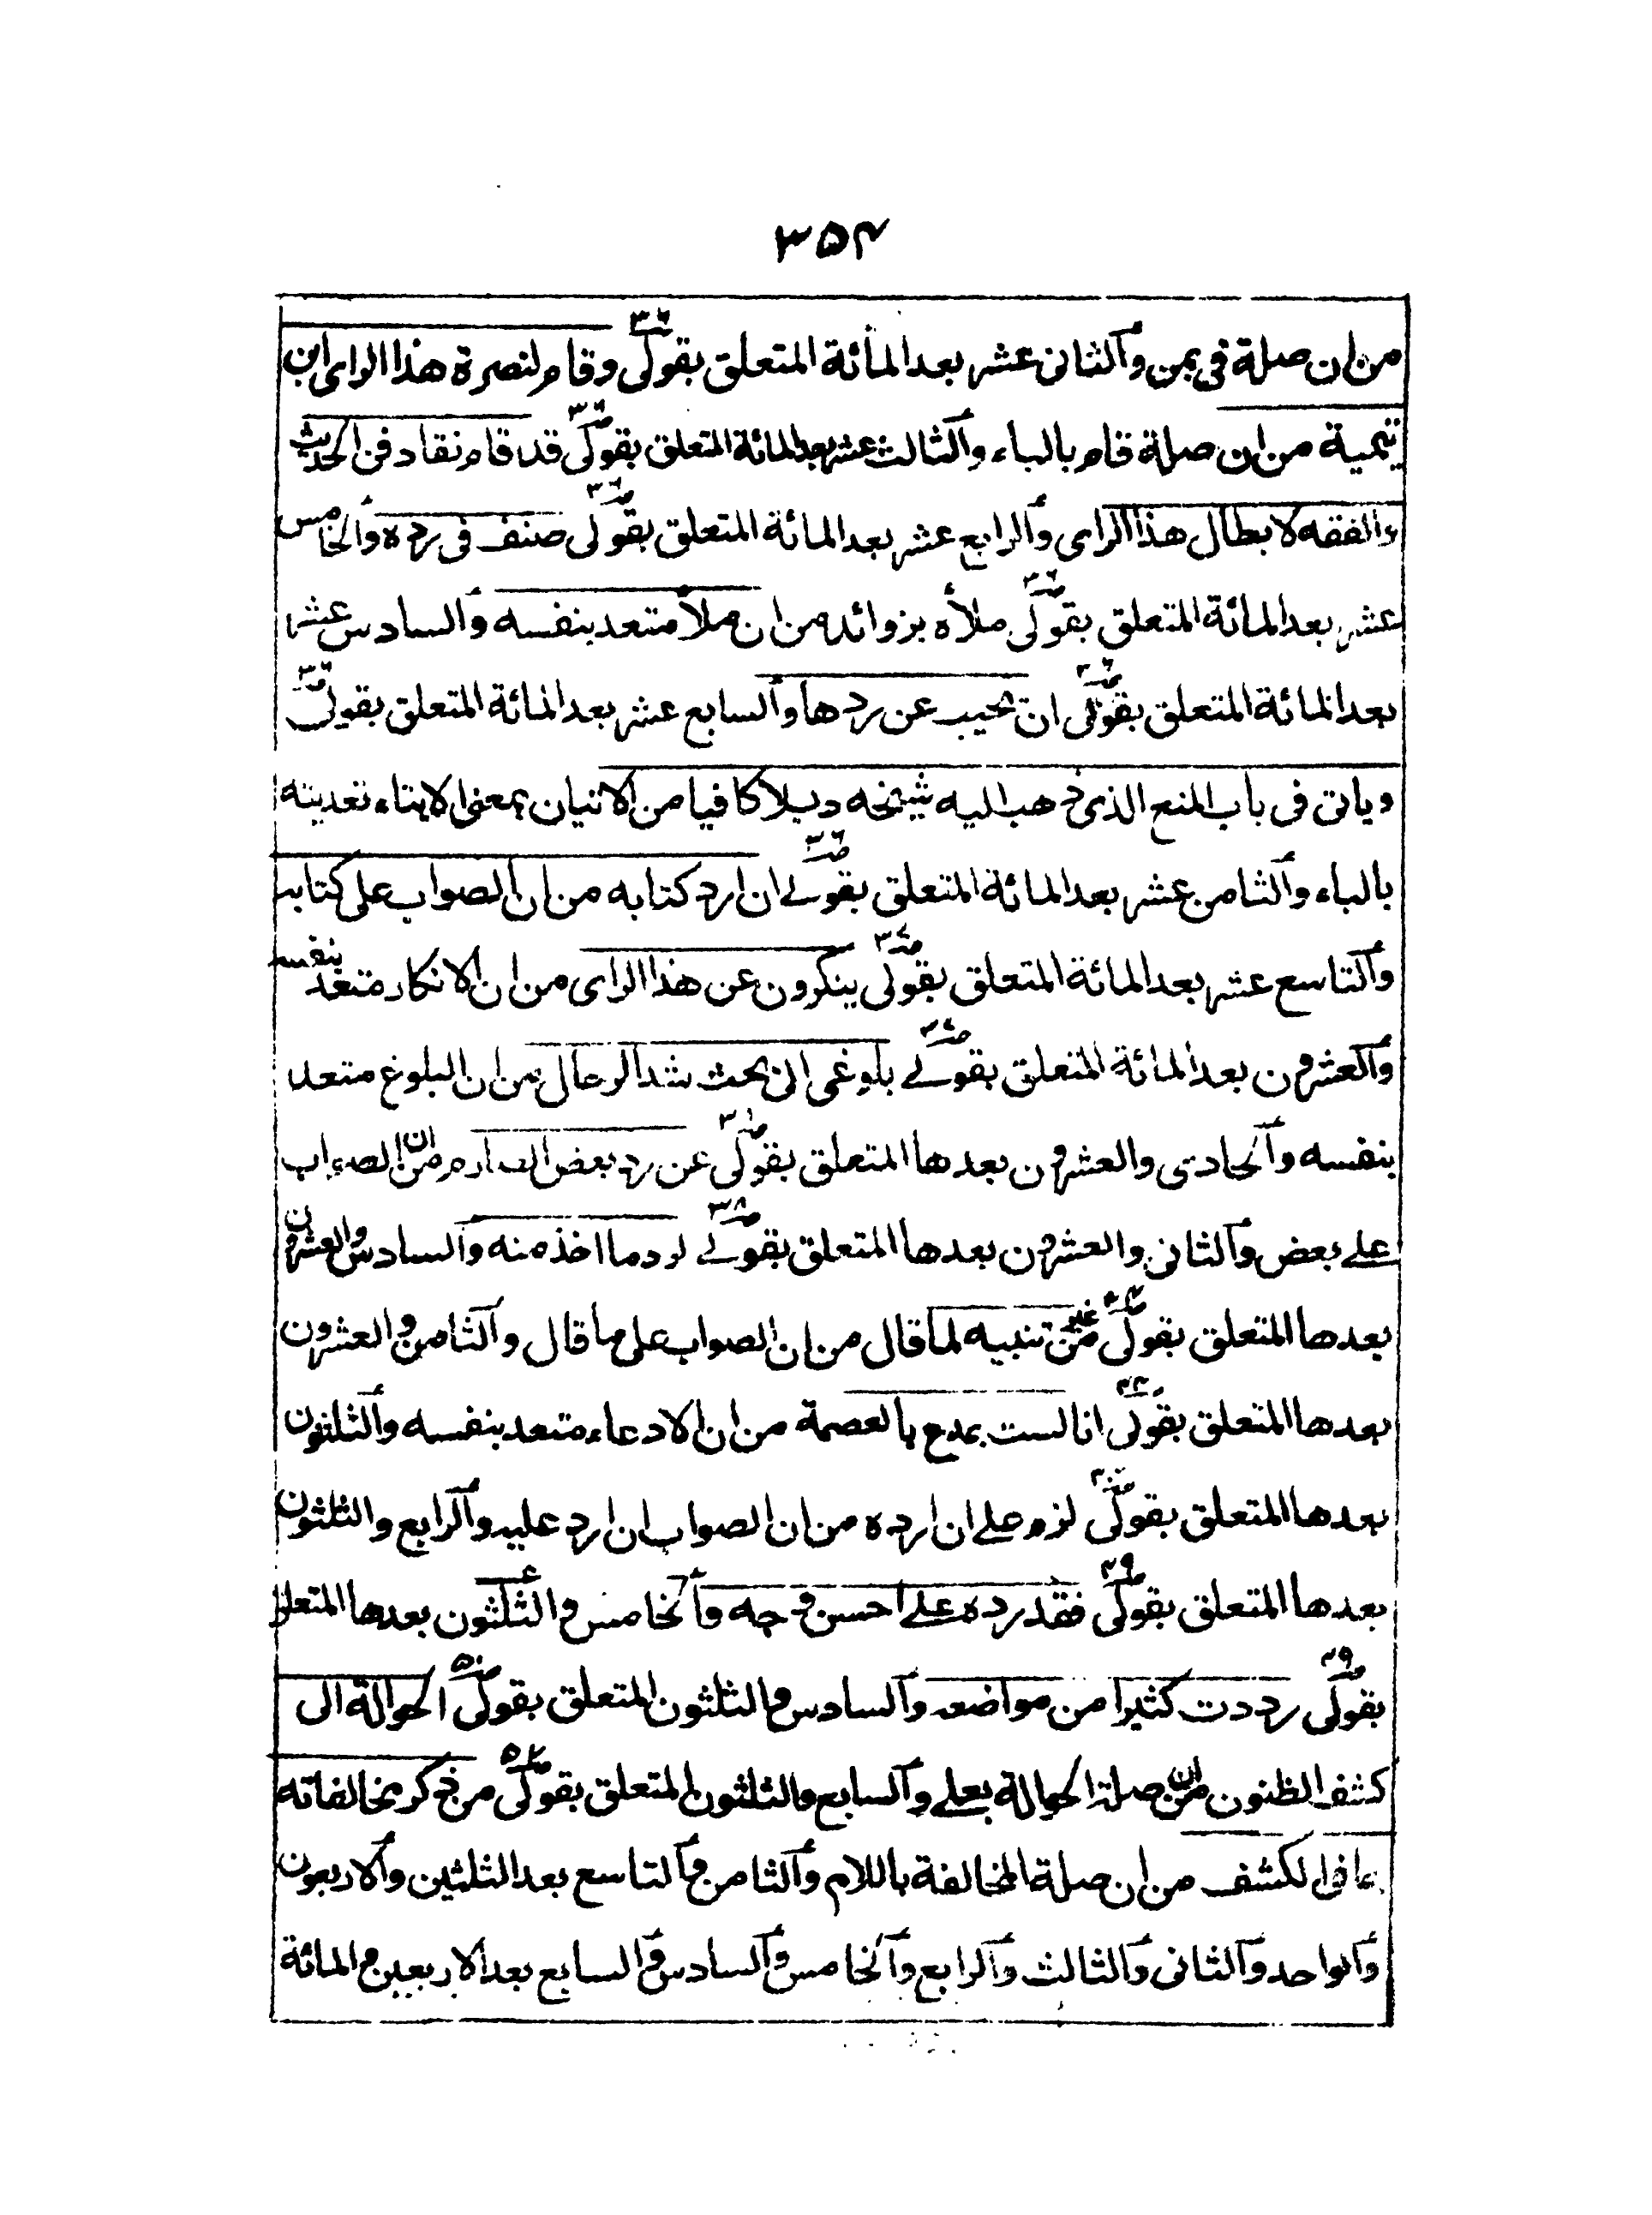 ۳۵۴
من ان صلة في بمن والثانى عشر بعد المأئة المتعلق بقولى ص۳۶ وقام لنصرة هذا الراى ابن
تيمية من ان صلة قام بالباء والثالث عشر بعد المائة المتعلق بقولى ص۳۶ قد قام نقاد فن الحديث
والفقه لابطال هذا الراى والرابع عشر بعد المائة المتعلق بقولى ص۳۶ صنف فى رده والخامس
عشر بعد المائة المتعلق بقولى ص۳۶ ملأه بزوائد من ان ملأ متعد بنفسه والسادس عشر
بعد المائة المتعلق بقولى ص۳۶ ان يجيب عن ردها والسابع عشر بعد المائة المتعلق بقولى ص۳۶
وياتى فى باب المنع الذى ذهب اليه شيخه دليلا كافيا من الاتيان بمعنى الايتاء تعديته
بالباء والثامن عشر بعد المائة المتعلق بقولے ص۳۶ ان ارد كتابه من ان الصواب على كتابه
والتاسع عشر بعد المائة المتعلق بقولى ص۳۷ ينكرون عن هذا الراى من ان الانكار متعد بنفسه
والعشرون بعد المائة المتعلق بقولے ص۳۷ بلوغى الى بحث شد الرحال من ان البلوغ متعد
بنفسه والحادى والعشرون بعدها المتعلق بقولى عن رد بعض الصارم من ان الصواب
علے بعض والثانى والعشرون بعدها المتعلق بقولے ص۳۸ لرد ما اخذه منه والسادس والعشرون
بعدها المتعلق بقولى من غير تنبيه لما قال من ان الصواب على ما قال والثامن والعشرون
بعدها المتعلق بقولى انا لست بمدع بالعصمة من ان الادعاء متعد بنفسه والثلثون
بعدها المتعلق بقولى لزم على ان ارده من ان الصواب ان ارد عليه والرابع والثلثون
بعدها المتعلق بقولى ص۴۹ فقد رده علے احسن وجه والخامس والثلثون بعدها المتعلق
بقولى ص۴۹ رددت كثيرا من مواضعه والسادس والثلثون المتعلق بقولى ص۵۰ الحوالة الى
كشف الظنون من ان صلة الحوالة بعلے والسابع والثلثون المتعلق بقولى من ذكر مخالفاته
ما فى الكشف من ان صلة المخالفة باللام والثامن والتاسع بعد الثلثين والاربعون
والواحد والثانى والثالث والرابع والخامس والسادس والسابع بعد الاربعين والمائة